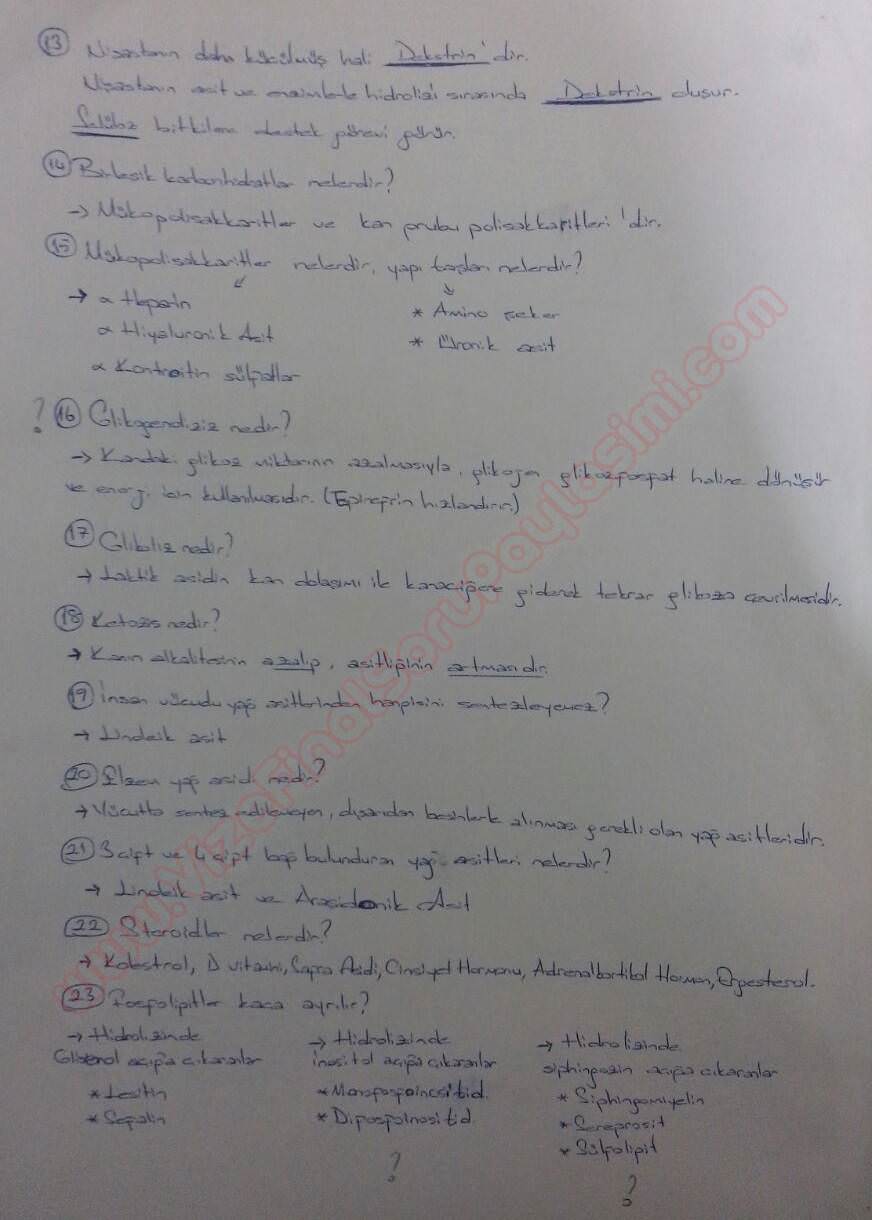 13 Nişastanın daha küçülmüş hali Dekstrin'dir.
Nişastanın asit ve enzimlerle hidrolizi sırasında Dekstrin oluşur.
Selüloz bitkilere destek görevi görür.
14 Birleşik karbonhidratlar nelerdir?
→ Mükopolisakkaritler ve kan grubu polisakkaritleri'dir.
15 Mükopolisakkaritler nelerdir, yapı taşları nelerdir?
→ α Heparin
* Amino şeker
α Hiyaluronik Asit
* Üronik asit
α Kontroitin sülfatlar
? 16 Glikojendiziz nedir?
→ Kandaki glikoz miktarının azalmasıyla, glikojen glikozfosfat haline dönüşür
ve enerji için kullanılmasıdır. (Epinefrin hızlandırır.)
17 Glikoliz nedir?
→ Laktik asidin kan dolaşımı ile karaciğere giderek tekrar glikoza çevrilmesidir.
18 Ketozis nedir?
→ Kanın alkalitesinin azalıp, asitliğinin artmasıdır.
19 İnsan vücudu yağ asitlerinden hangisini sentezleyemez?
→ Linoleik asit
20 Elzem yağ asidi nedir?
→ Vücutta sentez edilemeyen, dışarıdan besinlerle alınması gerekli olan yağ asitleridir.
21 3 çift ve 4 çift bağ bulunduran yağ asitleri nelerdir?
→ Linoleik asit ve Araşidonik Asit
22 Steroidler nelerdir?
→ Kolestrol, D vitamini, Safra Asidi, Cinsiyet Hormonu, Adrenalkortikol Hormon, Ergesterol.
23 Fosfolipitler kaça ayrılır?
→ Hidrolizinde
Gliserol açığa çıkaranlar
* Lesitin
* Sefalin
→ Hidrolizinde
inositol açığa çıkaranlar
* Monofosfoinositid.
* Difosfoinositid
?
→ Hidrolizinde
siphingozin açığa çıkaranlar
* Siphingomiyelin
* Serebrosit
* Sülfolipit
?
www.VizeFinalSoruPaylasimi.com